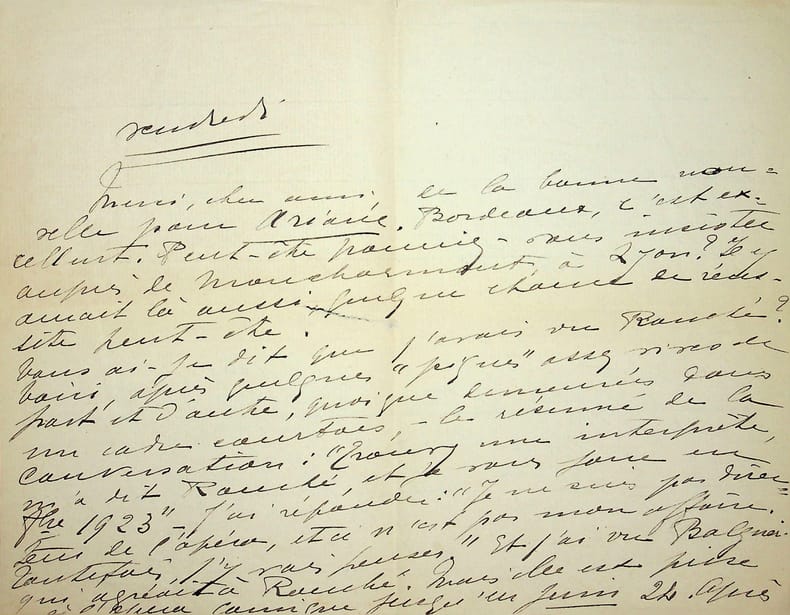 vendredi
Merci, cher ami, de la bonne nou-
velle pour Ariane. Bordeaux, c'est ex-
cellent. Peut-être pourriez-vous insister
auprès de Moncharmont, à Lyon? Il y
aurait là aussi quelque chance de réus-
site peut-être.
Vous ai-je dit que j'avais vu Rouché?
Voici, après quelques "piques" assez vives de
part et d'autre, quoique demeurées dans
un cadre courtois, - le résumé de la
conversation: "Trouvez une interprète,
m'a dit Rouché, et je vous joue en
1923" - J'ai répondu: "Je ne suis pas direc-
teur de l'opéra, et ce n'est pas mon affaire.
Toutefois, j'y vais penser." Et j'ai vu Balguerie
qui agréait à Rouché. Mais elle est prise
à l'Opéra comique jusqu'en Juin 24. Après